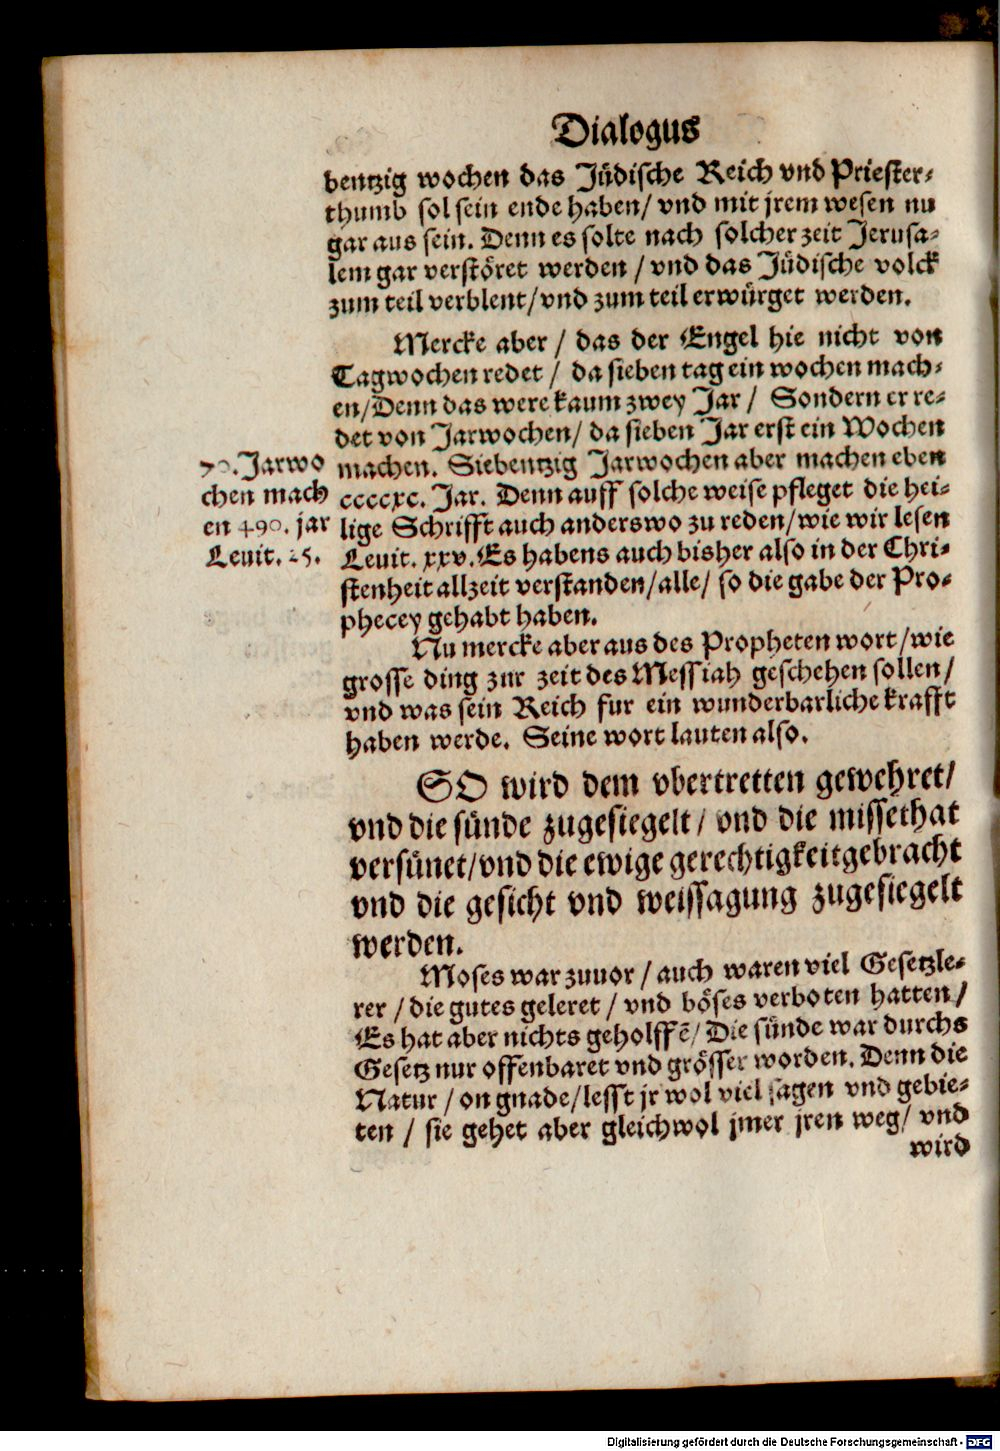 Dialogus
bentzig wochen das Jüdische Reich vnd Priester-
thumb sol sein ende haben/ vnd mit jrem wesen nu
gar aus sein. Denn es solte nach solcher zeit Jerusa-
lem gar verstöret werden / vnd das Jüdische volck
zum teil verblent/ vnd zum teil erwürget werden.
Mercke aber / das der Engel hie nicht von
Tagwochen redet / da sieben tag ein wochen mach-
en/ Denn das were kaum zwey Jar / Sondern er re-
det von Jarwochen/ da sieben Jar erst ein Wochen
machen. Siebentzig Jarwochen aber machen eben
ccccxc. Jar. Denn auff solche weise pfleget die hei-
lige Schrifft auch anderswo zu reden/ wie wir lesen
Leuit. xxv. Es habens auch bisher also in der Chri-
stenheit allzeit verstanden/ alle/ so die gabe der Pro-
phecey gehabt haben.
70. Jarwo
chen mach
en 490. jar
Leuit. 25.
Nu mercke aber aus des Propheten wort/ wie
grosse ding zur zeit des Messiah geschehen sollen/
vnd was sein Reich fur ein wunderbarliche krafft
haben werde. Seine wort lauten also.
SO wird dem vbertretten gewehret/
vnd die sünde zugesiegelt/ vnd die missethat
versünet/ vnd die ewige gerechtigkeit gebracht
vnd die gesicht vnd weissagung zugesiegelt
werden.
Moses war zuuor / auch waren viel Gesetzle-
rer / die gutes geleret / vnd böses verboten hatten/
Es hat aber nichts geholffẽ/ Die sünde war durchs
Gesetz nur offenbaret vnd grösser worden. Denn die
Natur / on gnade/ lesst jr wol viel sagen vnd gebie-
ten / sie gehet aber gleichwol jmer jren weg/ vnd
wird
Digitalisierung gefördert durch die Deutsche Forschungsgemeinschaft - DFG